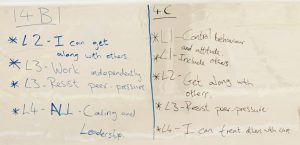 14B1
*L2-I can get
along with others.
*L3-Work independently
*L3-Resist peer pressure
*L4- Caring and
Leadership
+C
*L1-Control behaviour
and attitude
*L1-Include others
*L2-Get along with
others
*L3-Resist peer-pressure
*L4-I can treat others with care